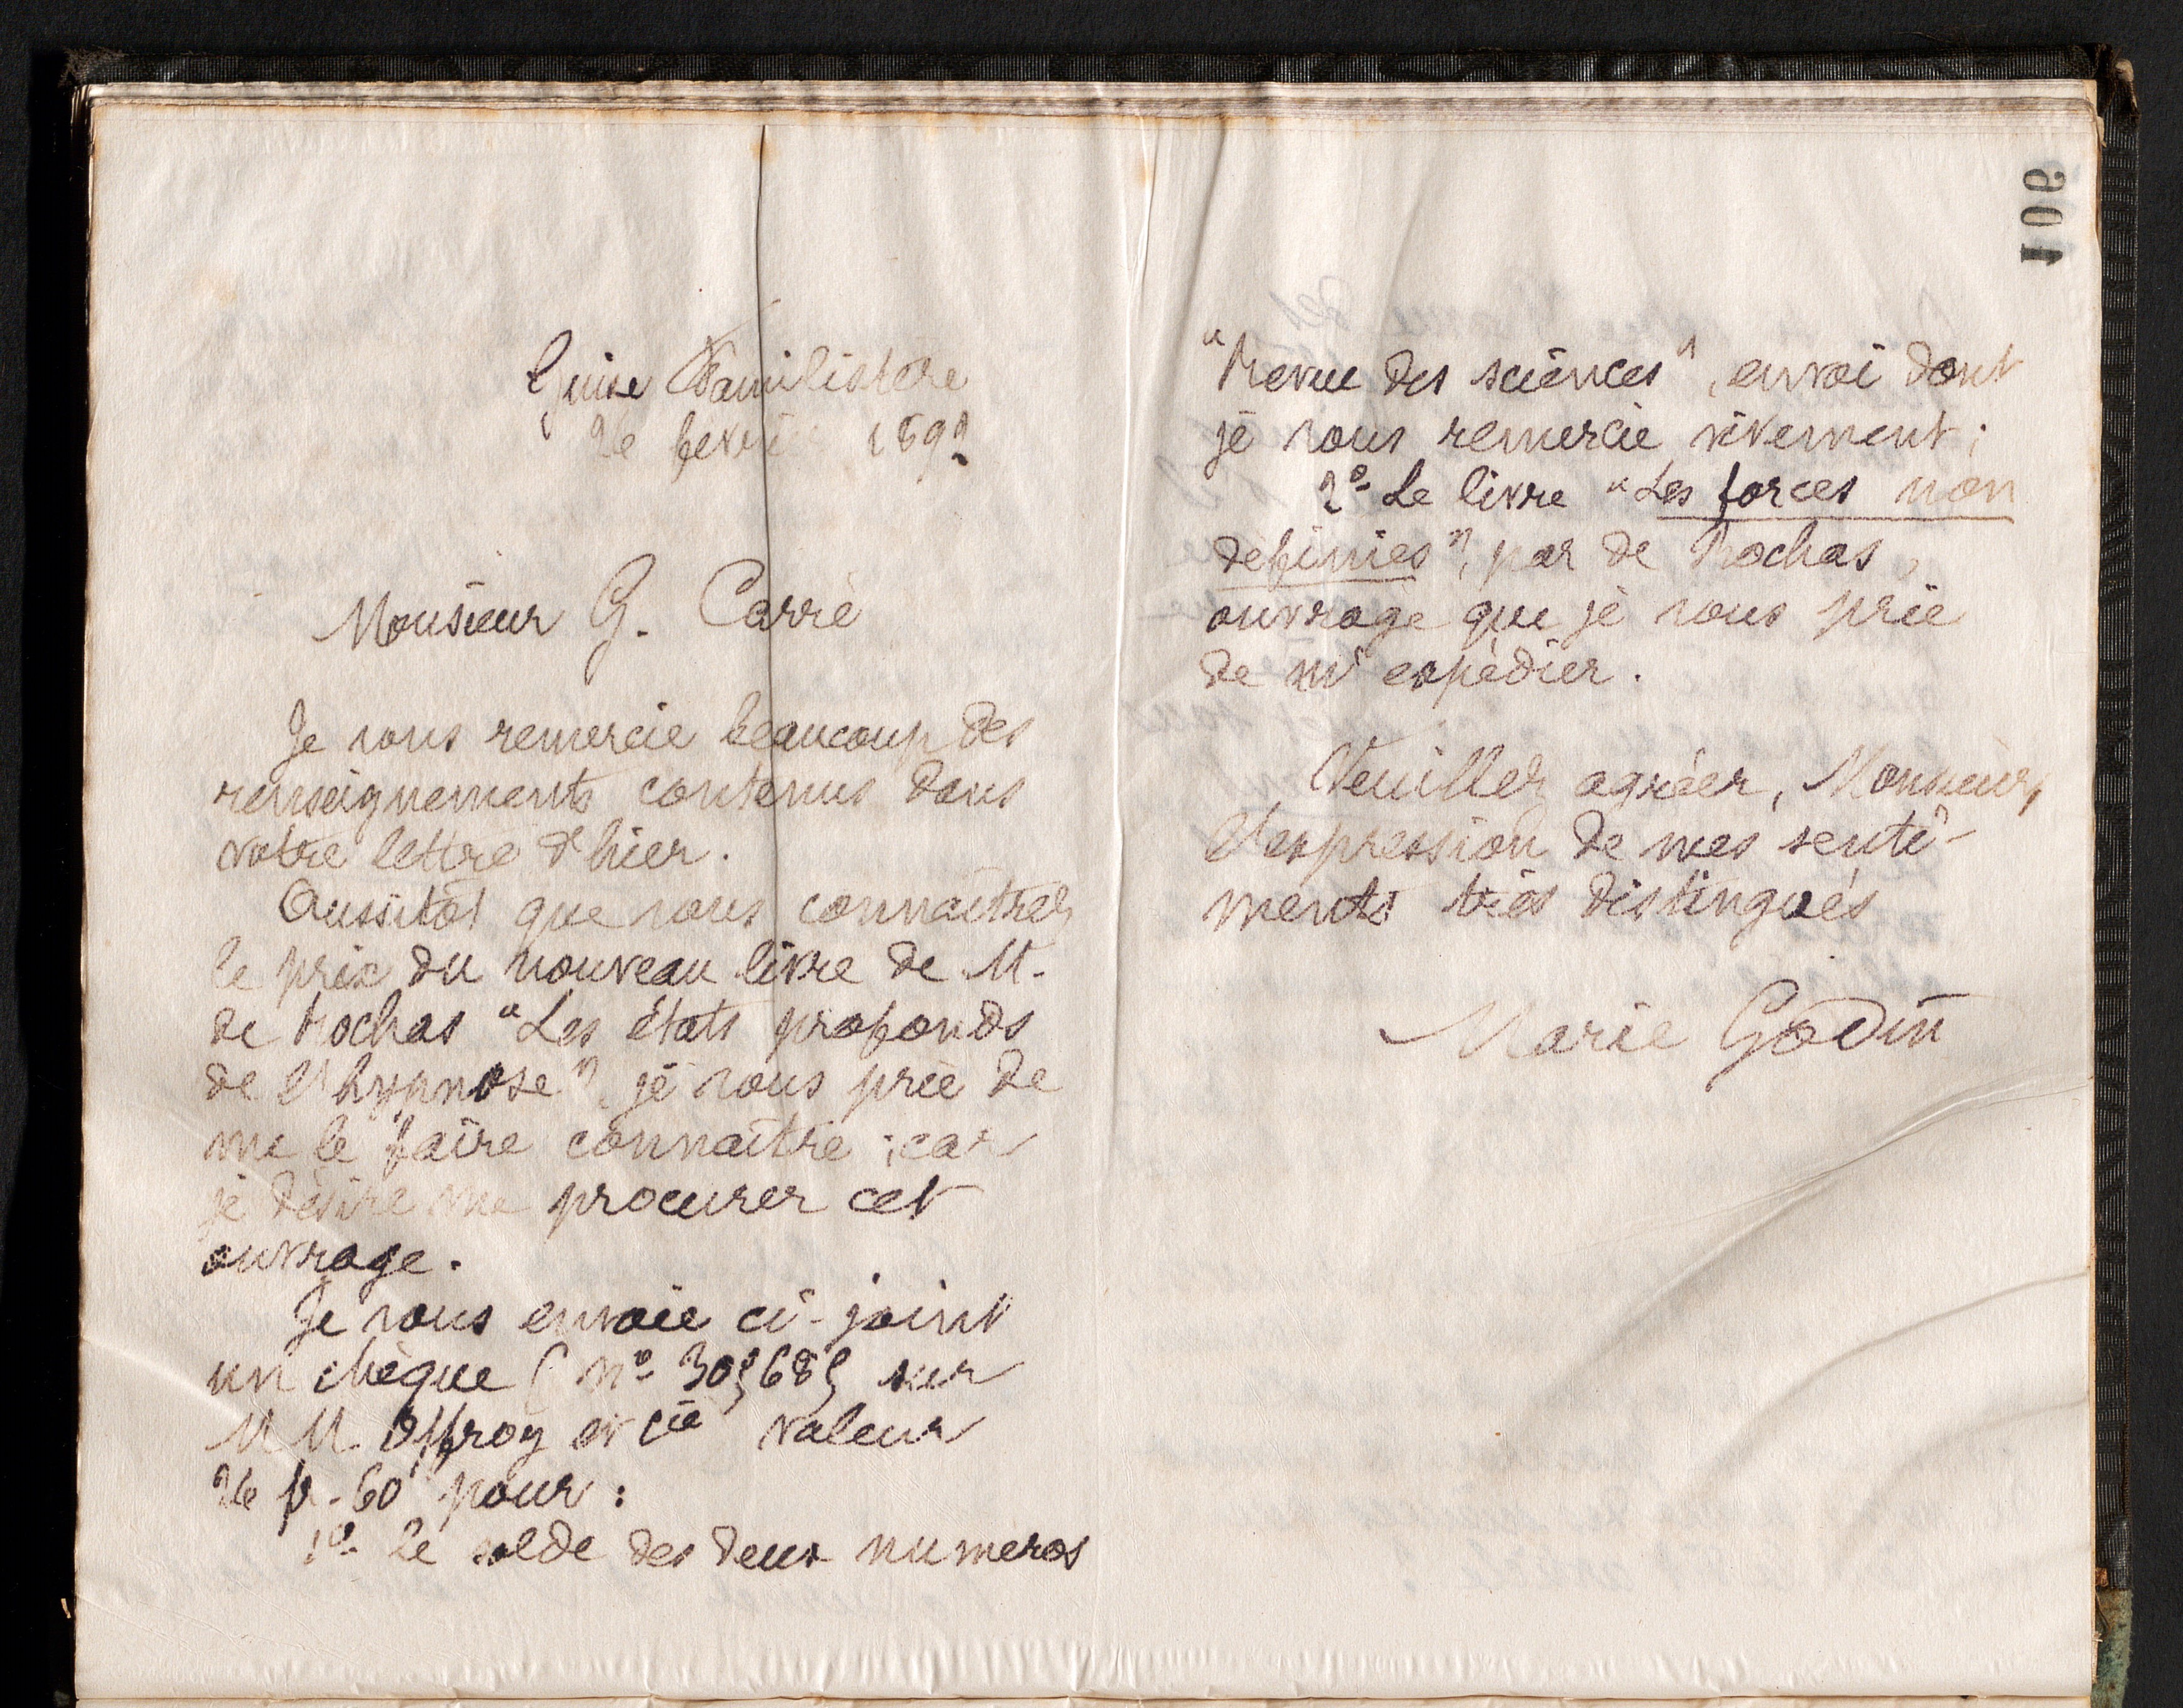 Guise Familistère
26 fevri 1892
Monsieur G. Carré
Je vous remercie beaucoup des
renseignements contenus dans
votre lettre d'hier.
Aussitôt que vous connaîtrez
le prix du nouveau livre de M.
de Rochas "Les états profonds
de l'hypnose", je vous prie de
me le faire connaître ; car
je désire me procurer cet
ouvrage.
Je vous envoie ci-joint
un chèque (n° 305685 sur
M M. Offroy et Cie valeur
26 fr. 60 pour :
1° Le solde des deux numéros
106
"Revue des sciences", envoi dont
je vous remercie vivement ;
2° Le livre "Les forces non
définies", par de Rochas,
ouvrage que je vous prie
de m'expédier.
Veuillez agréer, Monsieur,
l'expression de mes senti-
ments très distingués
Marie Godin